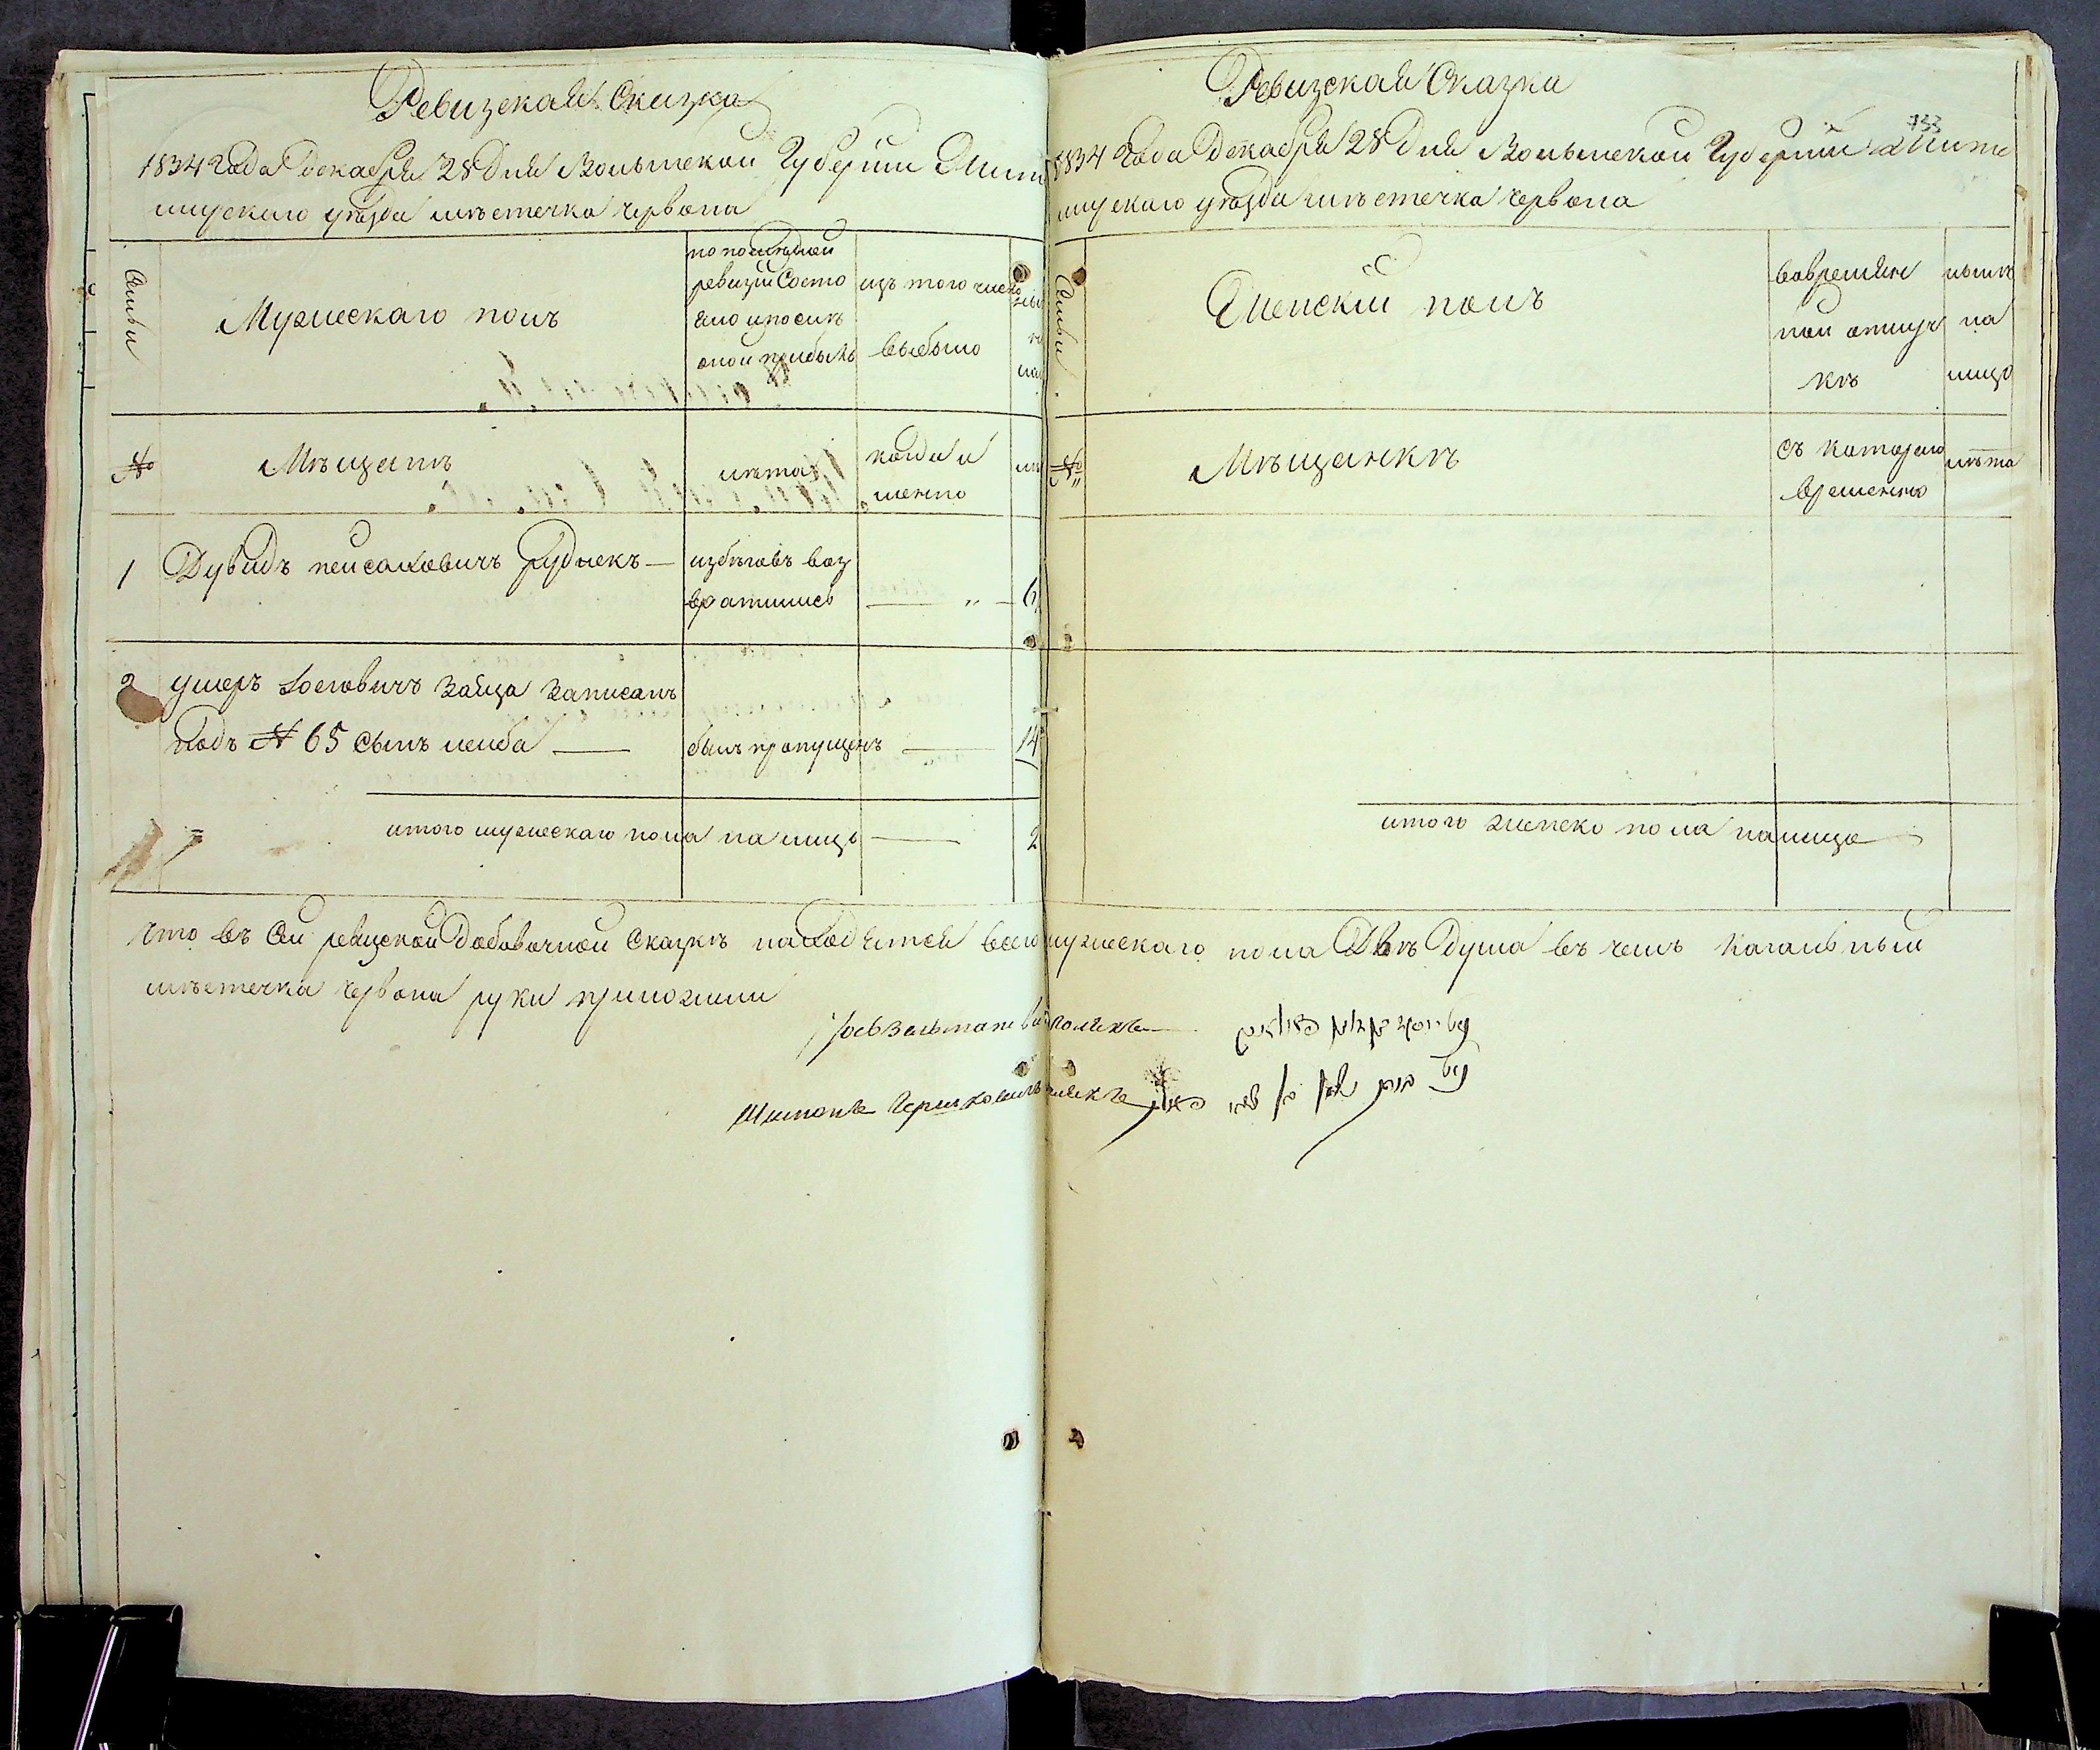 Ревизская Сказка
1834 Года Декабря 28 Дня Волынской Губернии Жито
мирскаго уезда мѣстечка Червона
Семьи
Мужескаго полъ
по последней
ревизіи Состо
яло и после
оной прибыло
изъ того числа
выбыло
№
Мѣщанъ
лѣта
когда и
менно
1 Дувидъ пейсаховичъ Рудыкъ — избѣговъ воз
вратился — „ — 6
2 Ушеръ Іосевичъ Зайца Записанъ
подъ № 65 Сынъ лейба — былъ пропущенъ — 14
итого мужескаго пола на лицо — 2
Ревизская Сказка
733
1834 Года Декабря 28 Дня Волынской Губерніи Жито
мирскаго уезда мѣстечка Червона
Семьи
Женскій полъ
вовремян
ной отлуч
кѣ
нынѣ
на
лицо
№
Мѣщанкѣ
Съ котораго
временно
лѣта
итого женско пола налицо
что въ Сей ревизской Добовочной Сказкѣ находится всего мужескаго пола Двѣ Душа въ чемъ Кагальный
мѣстечка Червона руки приложили